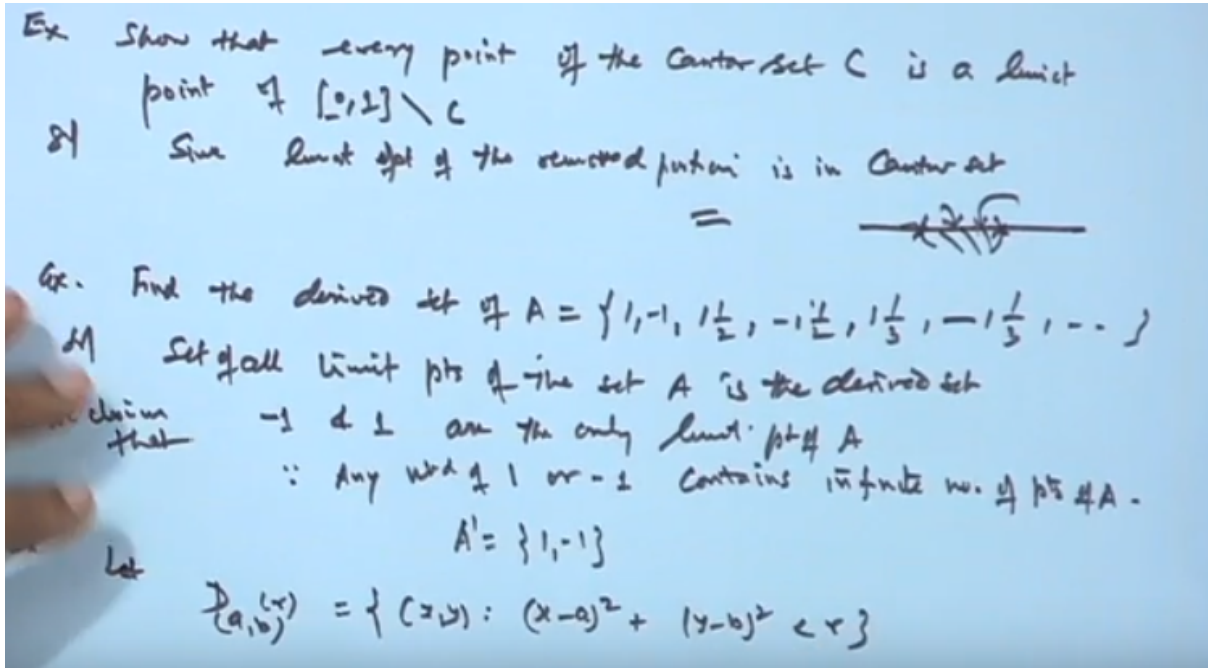 Ex Show that every point of the Cantor set C is a limit
point of [0,1] \ C
Sol Since limit pt of the removed portion is in Cantor set
=
Ex. Find the derived set of A = {1, -1, 1 1/2, -1 1/2, 1 1/3, -1 1/3, ...}
Sol Set of all limit pts of the set A is the derived set
claim that -1 & 1 are the only limit pt of A
∵ Any nbd of 1 or -1 contains infinite no. of pts of A.
A' = {1, -1}
Let
D(a,b)(r) = { (x,y) : (x-a)² + (y-b)² < r }